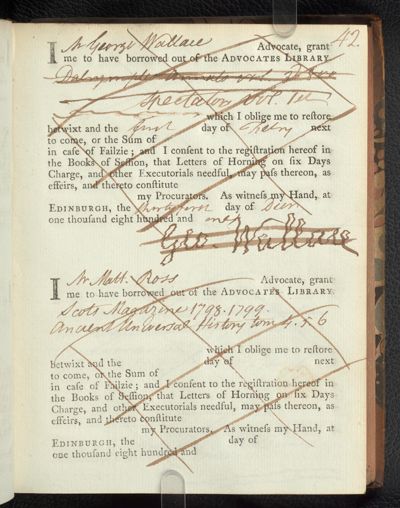 42.
I Mr George Wallace Advocate, grant
me to have borrowed out of the ADVOCATES LIBRARY
Dalrymple Annals vol.
Spectator Vol. 1st
which I oblige me to restore
betwixt and the first day of next
to come, or the Sum of
in caſe of Failzie; and I conſent to the regiſtration hereof in
the Books of Seſſion, that Letters of Horning on ſix Days
Charge, and other Executorials needful, may paſs thereon, as
effeirs, and thereto conſtitute
my Procurators. As witneſs my Hand, at
EDINBURGH, the day of Decr
one thouſand eight hundred and one
Geo. Wallace
I Mr Matt. Ross Advocate, grant
me to have borrowed out of the ADVOCATES LIBRARY
Scots Magazine 1798. 1799.
Ancient Universal History tom 4. 5. 6
which I oblige me to reſtore
betwixt and the day of next
to come, or the Sum of
in caſe of Failzie; and I conſent to the regiſtration hereof in
the Books of Seſſion, that Letters of Horning on ſix Days
Charge, and other Executorials needful, may paſs thereon, as
effeirs, and thereto conſtitute
my Procurators. As witneſs my Hand, at
EDINBURGH, the day of
one thouſand eight hundred and